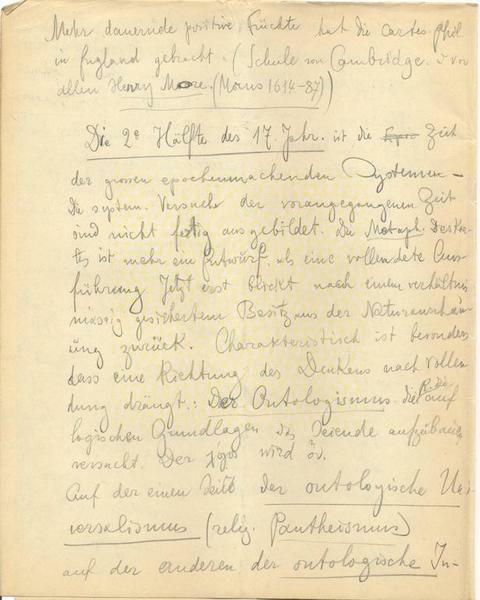 Mehr dauernde positive Früchte hat die cartes. Phil
in England gebracht. (Schule von Cambridge. u vor
allem Henry More. (Morus 1614-87))
Die 2e Hälfte des 17. Jahr. ist die Zeit
der grossen epochenmachenden Systemen –
Die system. Versuche der vorangegangenen Zeit
sind nicht fertig ausgebildet. Die Metaph. Descar-
tes ist mehr ein Entwurf, als eine vollendete Aus-
führung. Jetzt erst blickt nach einem verhältnis
mässig gesichertem Besitz aus der Naturanschau-
ung zurück. Charakteristisch ist besonders
dass eine Richtung des Denkens nach Vollen
dung drängt: Der Ontologismus. die auf
logischen Grundlagen das Seiende aufzubauen
versucht. Der λόγος wird ὄν.
Auf der einen Seite der ontologische Uni-
versalismus (relig. Pantheismus)
auf der anderen der ontologische In-